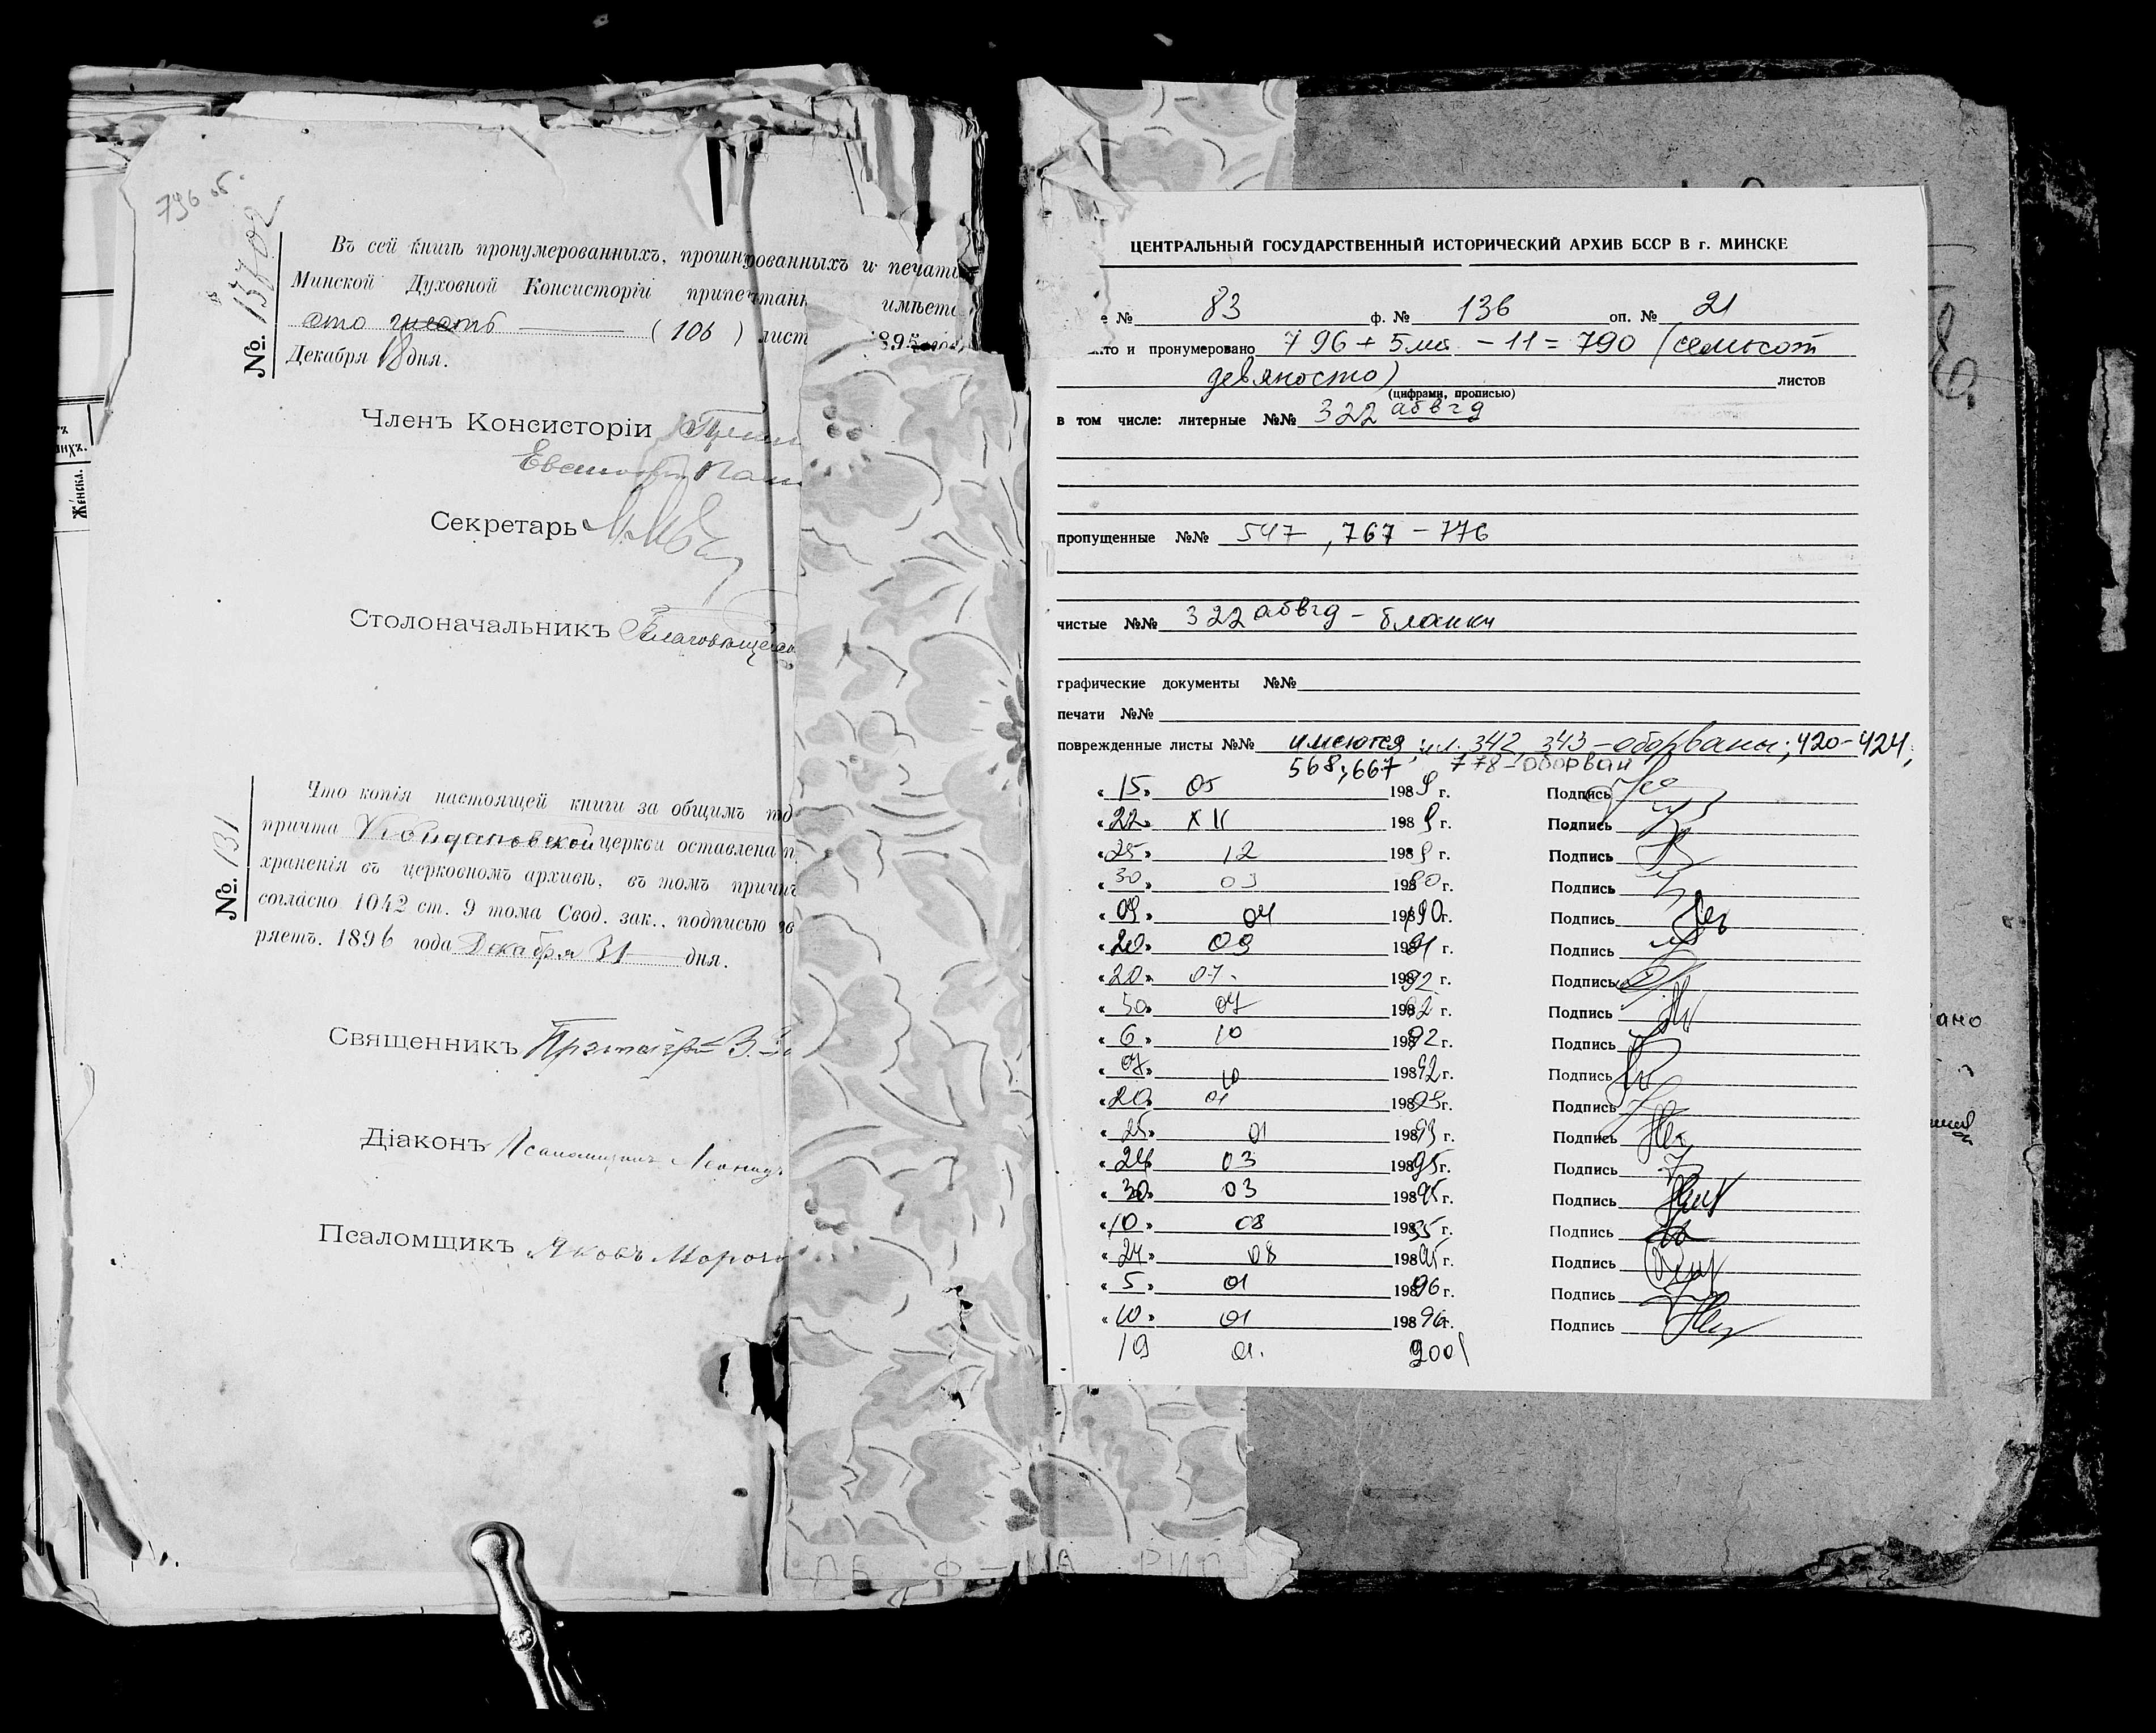 796 об.
№. 13702
Въ сей книгѣ пронумерованныхъ, прошнурованныхъ и печатью
Минской Духовной Консисторіи припечтан имѣетс
сто шесть (106) лист 1895
Декабря 18 дня.
Членъ Консисторіи
Секретарь
Столоначальникъ Благовѣщенс
№. 131
Что копія настоящей книги за общимъ
причта Койдановской церкви оставлена
храненія въ церковномъ архивѣ, въ томъ причтъ
согласно 1042 ст. 9 тома Свод. зак., подписью
ряетъ. 1896 года Декабря 31 дня.
Священникъ
Діаконъ Псаломщикъ Леонид
Псаломщикъ Яковъ
Женска.
ЦЕНТРАЛЬНЫЙ ГОСУДАРСТВЕННЫЙ ИСТОРИЧЕСКИЙ АРХИВ БССР В г. МИНСКЕ
е № 83 ф. № 136 оп. № 21
то и пронумеровано 796 + 5 лит. - 11 = 790 (семьсот
девяносто) листов
(цифрами, прописью)
в том числе: литерные №№ 322 абвгд
пропущенные №№ 547, 767 - 776
чистые №№ 322 абвгд - бланки
графические документы №№
печати №№
поврежденные листы №№ имеются; лл. 342, 343 - оборваны; 420-424;
568; 667; 778-оборван
«15» 05 1989 г. Подпись
«22» XII 1989 г. Подпись
«25» 12 1989 г. Подпись
«30» 03 19890 г. Подпись
«09» 04 19890 г. Подпись
«20» 09 19891 г. Подпись
«20» 07. 19892 г. Подпись
«30» 07 19892 г. Подпись
«6» 10 19892 г. Подпись
«07» 10 19892 г. Подпись
«20» 01 19893 г. Подпись
«25» 01 19893 г. Подпись
«24» 03 19895 г. Подпись
«30» 03 19895 г. Подпись
«10» 08 19895 г. Подпись
«24» 08 19895 г. Подпись
«5» 01 19896 г. Подпись
«10» 01 19896 г. Подпись
19 01. 2001